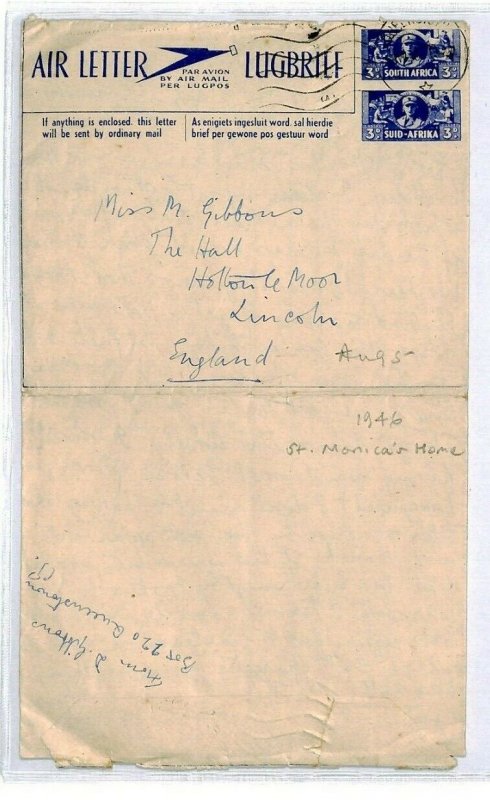 AIR LETTER
PAR AVION
BY AIR MAIL
PER LUGPOS
LUGBRIEF
If anything is enclosed, this letter
will be sent by ordinary mail
As enigiets ingesluit word, sal hierdie
brief per gewone pos gestuur word
3D SOUTH AFRICA 3D
3D SUID-AFRIKA 3D
Miss M. Gibbons
The Hall
Holton le Moor
Lincoln
England
Aug 5
1946
St. Monica's Home
From D. Gibbons
Box 220 Queenstown
C.P.